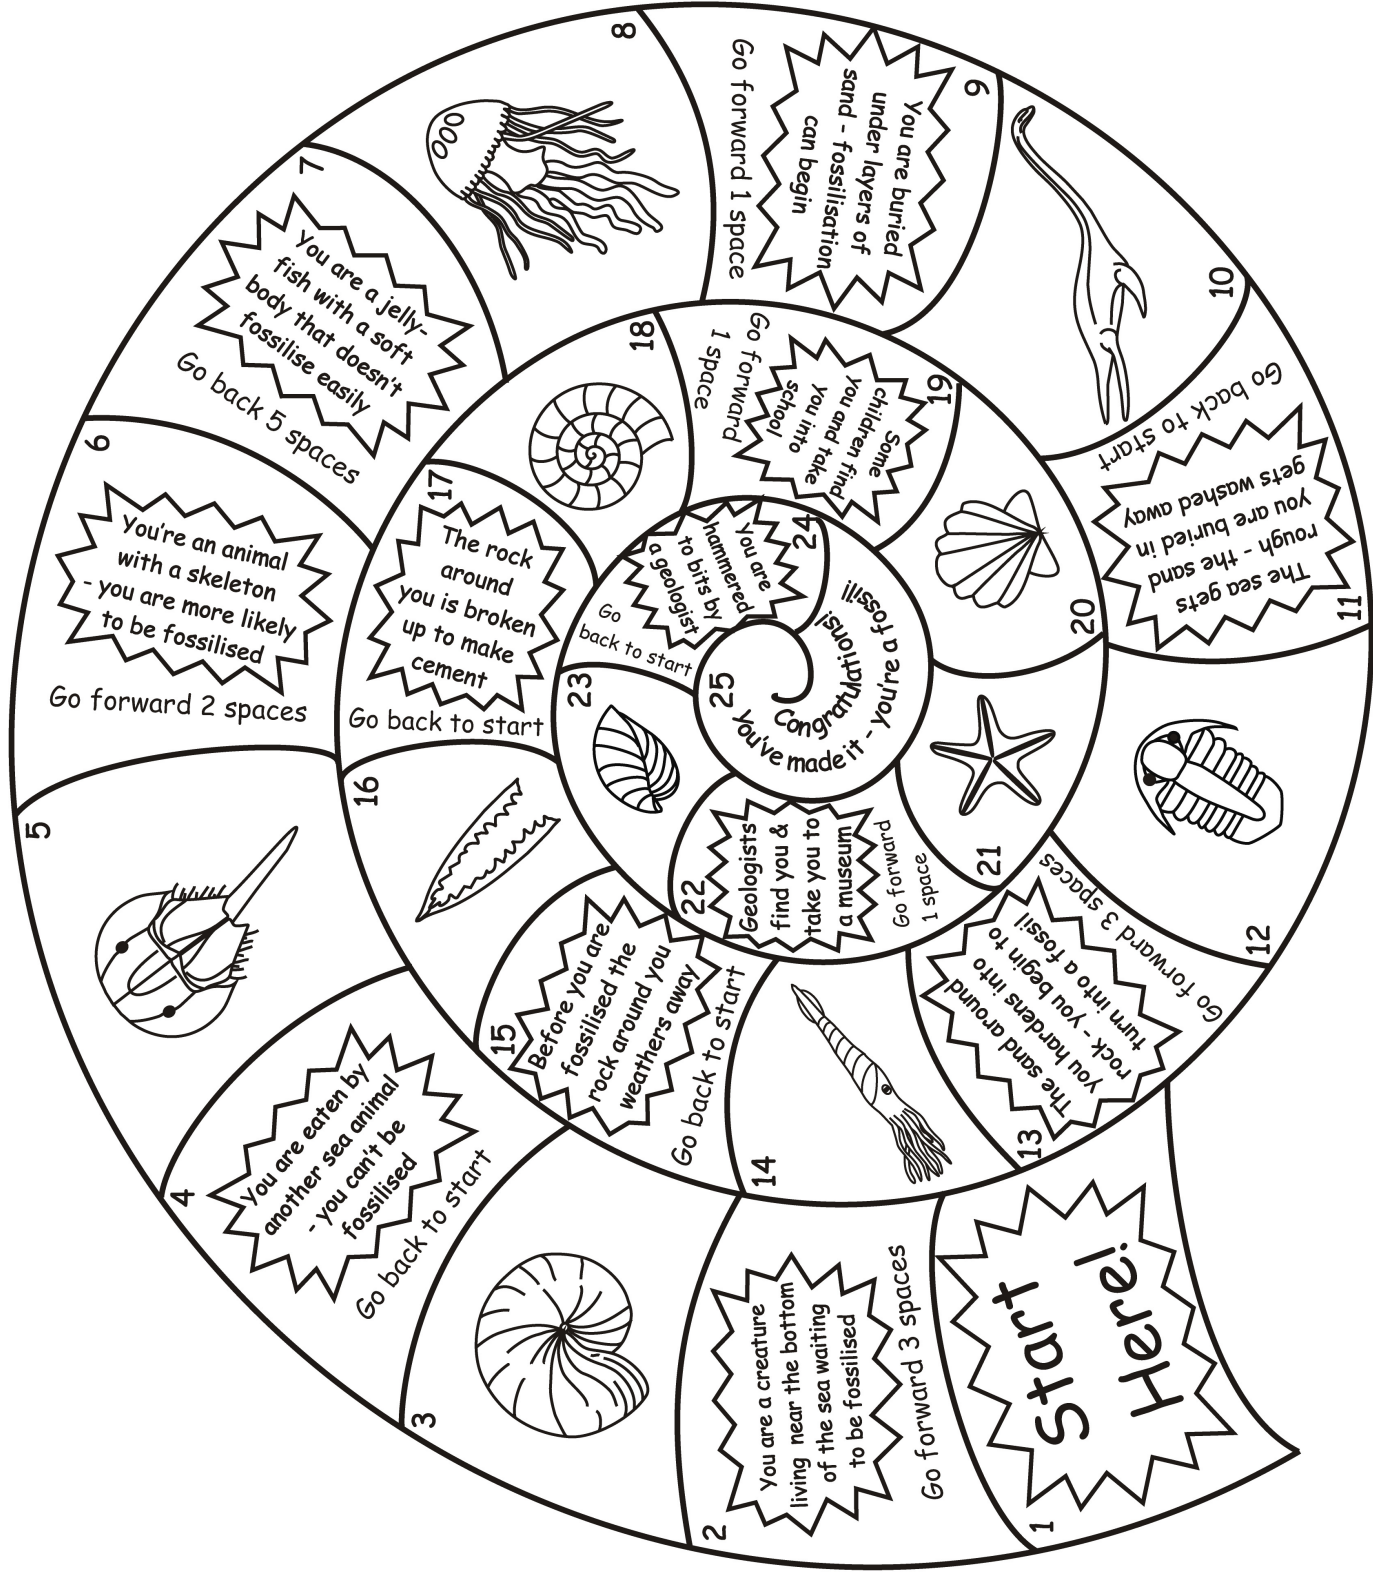 1
Start
Here!
2
You are a creature
living near the bottom
of the sea waiting
to be fossilised
Go forward 3 spaces
3
4
You are eaten by
another sea animal
- you can't be
fossilised
Go back to start
5
6
You're an animal
with a skeleton
- you are more likely
to be fossilised
Go forward 2 spaces
7
You are a jelly-
fish with a soft
body that doesn't
fossilise easily
Go back 5 spaces
8
9
You are buried
under layers of
sand - fossilisation
can begin
Go forward 1 space
10
11
The sea gets
rough - the sand
you are buried in
gets washed away
Go back to start
12
13
The sand around
you hardens into
rock - you begin to
turn into a fossil
Go forward 3 spaces
14
15
Before you are
fossilised the
rock around you
weathers away
Go back to start
16
17
The rock
around
you is broken
up to make
cement
Go back to start
18
19
Some
children find
you and take
you into
school
Go forward
1 space
20
21
22
Geologists
find you &
take you to
a museum
Go forward
1 space
23
24
You are
hammered
to bits by
a geologist
Go
back to start
25
Congratulations!
You've made it - you're a fossil!